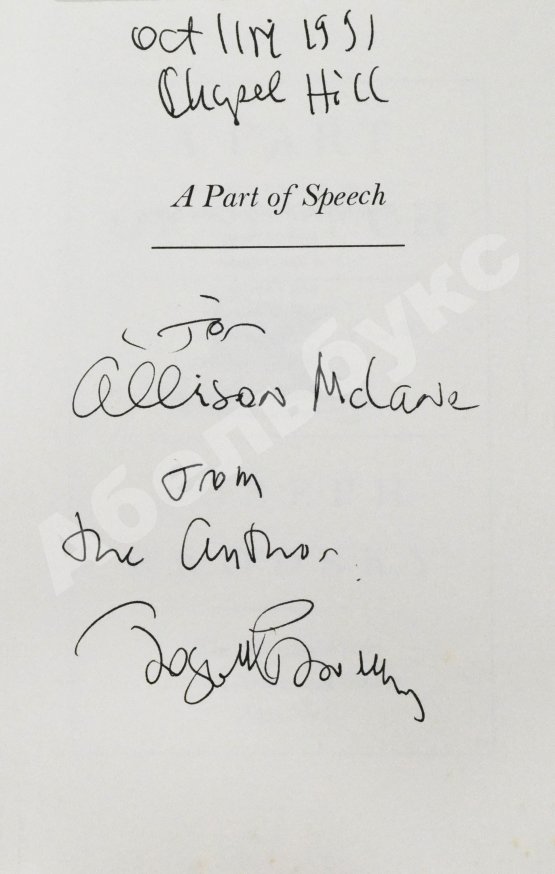 oct 11th 1991
Chapel Hill
A Part of Speech
For
Allison McLane
from
the author.
Joseph Brodsky
Абельбукс